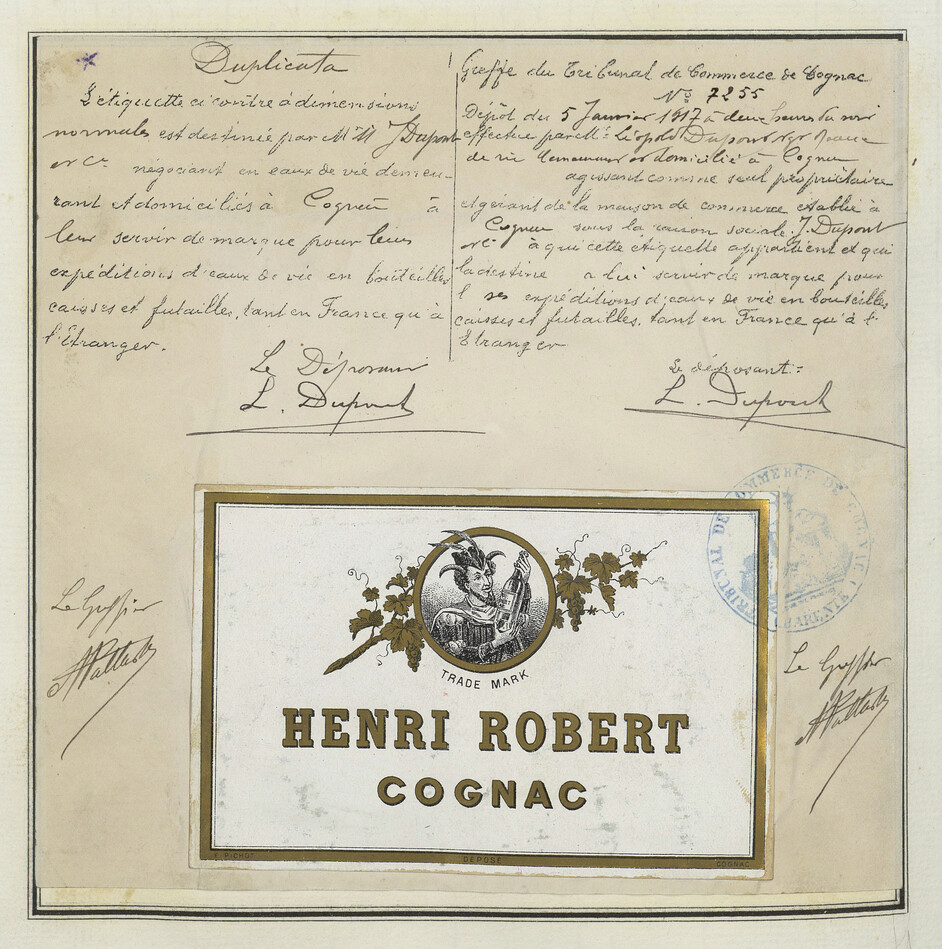 Duplicata
L'étiquette ci contre à dimensions
normales est destinée par MM J Dupont
et Cie négociant en eaux de vie demeu-
rant et domiciliés à Cognac à
leur servir de marque pour leurs
expéditions d'eaux de vie en bouteilles
caisses et futailles, tant en France qu'à
l'étranger.
Le Déposant
L. Dupont
Greffe du Tribunal de Commerce de Cognac
No 7255
Dépôt du 5 Janvier 1917 à deux heures du soir
effectué par M. Léopold Dupont
de vie demeurant et domicilié à Cognac
agissant comme seul propriétaire
et gérant de la maison de commerce établie à
Cognac sous la raison sociale J. Dupont
et Cie à qui cette étiquette appartient et qui
la destine a lui servir de marque pour
ses expéditions d'eaux de vie en bouteilles
caisses et futailles, tant en France qu'à l'
Etranger
Le déposant:
L. Dupont
TRIBUNAL DE COMMERCE DE COGNAC
CHARENTE
Le Greffier
Le Greffier
TRADE MARK
HENRI ROBERT
COGNAC
E. PICHOT
DÉPOSÉ
COGNAC